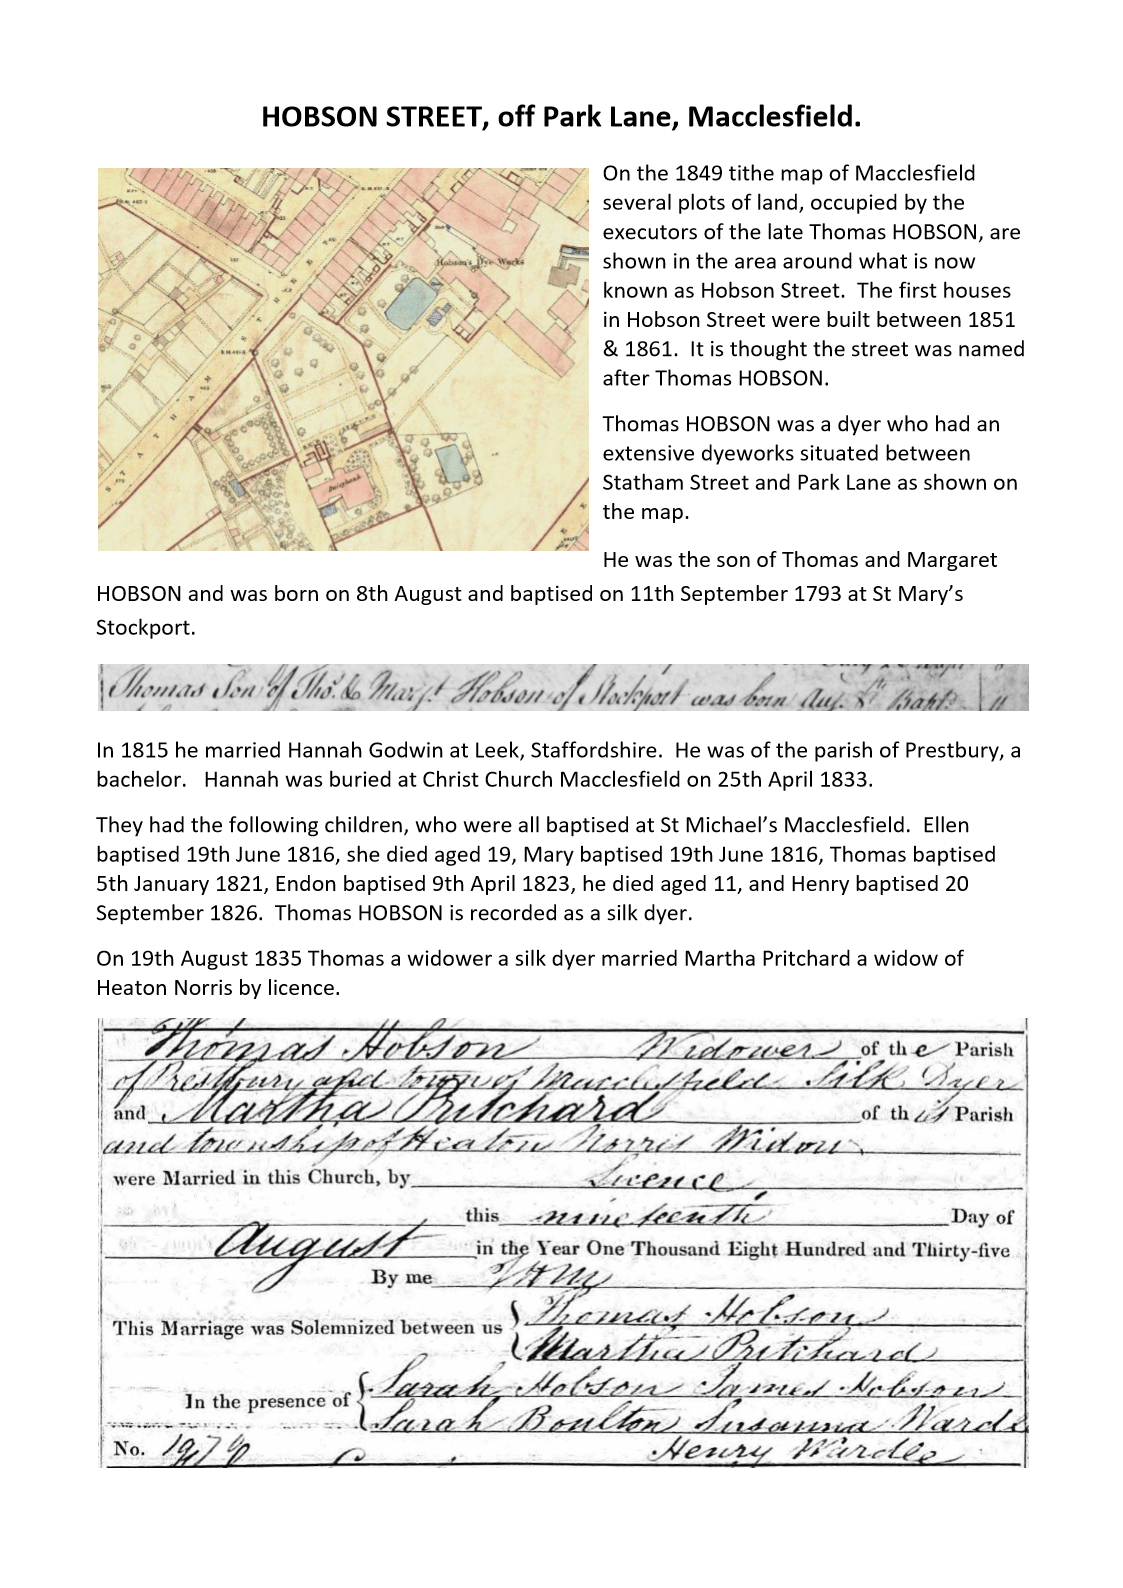 HOBSON STREET, off Park Lane, Macclesfield.
Hobson's Dye Works
STATHAM STREET
Daisybank
On the 1849 tithe map of Macclesfield
several plots of land, occupied by the
executors of the late Thomas HOBSON, are
shown in the area around what is now
known as Hobson Street.  The first houses
in Hobson Street were built between 1851
& 1861.  It is thought the street was named
after Thomas HOBSON.
Thomas HOBSON was a dyer who had an
extensive dyeworks situated between
Statham Street and Park Lane as shown on
the map.
He was the son of Thomas and Margaret
HOBSON and was born on 8th August and baptised on 11th September 1793 at St Mary’s
Stockport.
Thomas Son of Thos. & Margt. Hobson of Stockport was born Aug. 8th Bapt. 11
In 1815 he married Hannah Godwin at Leek, Staffordshire.  He was of the parish of Prestbury, a
bachelor.   Hannah was buried at Christ Church Macclesfield on 25th April 1833.
They had the following children, who were all baptised at St Michael’s Macclesfield.  Ellen
baptised 19th June 1816, she died aged 19, Mary baptised 19th June 1816, Thomas baptised
5th January 1821, Endon baptised 9th April 1823, he died aged 11, and Henry baptised 20
September 1826.  Thomas HOBSON is recorded as a silk dyer.
On 19th August 1835 Thomas a widower a silk dyer married Martha Pritchard a widow of
Heaton Norris by licence.
Thomas Hobson Widower of the Parish
of Prestbury and town of Macclesfield Silk Dyer
and Martha Pritchard of this Parish
and township of Heaton Norris Widow
were Married in this Church, by Licence
this nineteenth Day of
August in the Year One Thousand Eight Hundred and Thirty-five
By me
This Marriage was Solemnized between us Thomas Hobson
Martha Pritchard
In the presence of Sarah Hobson James Hobson
Sarah Boulton Susanna Wardle
No. Henry Wardle